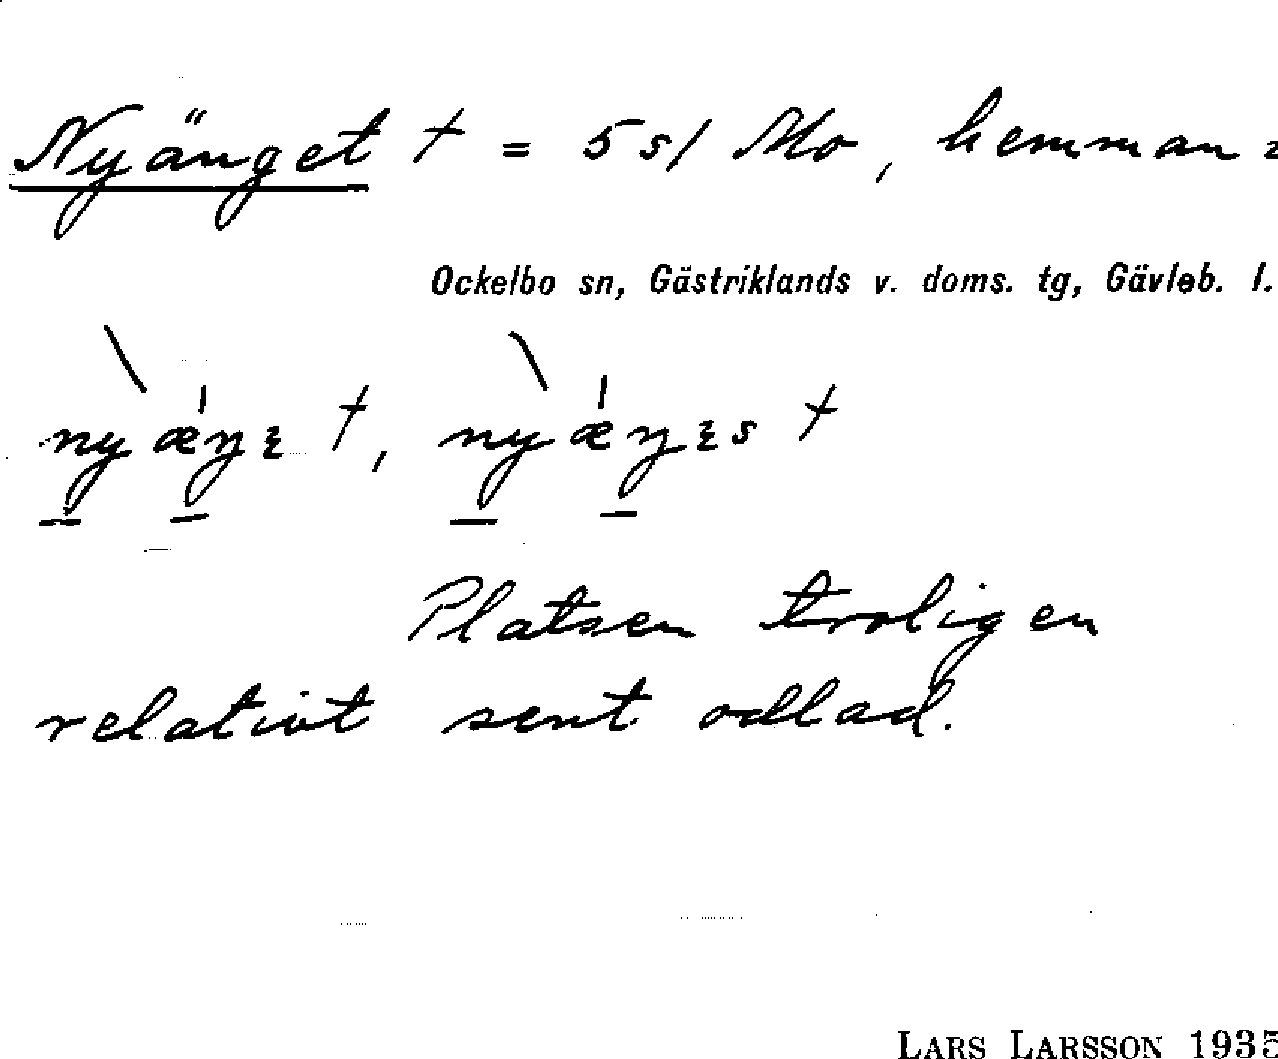 Nyänget † = 5 s/ Mo, hemman =
Ockelbo sn, Gästriklands v. doms. tg, Gävleb. l.
nyæŋɛ †, nyæŋɛs †
Platsen troligen
relativt sent odlad.
LARS LARSSON 1935